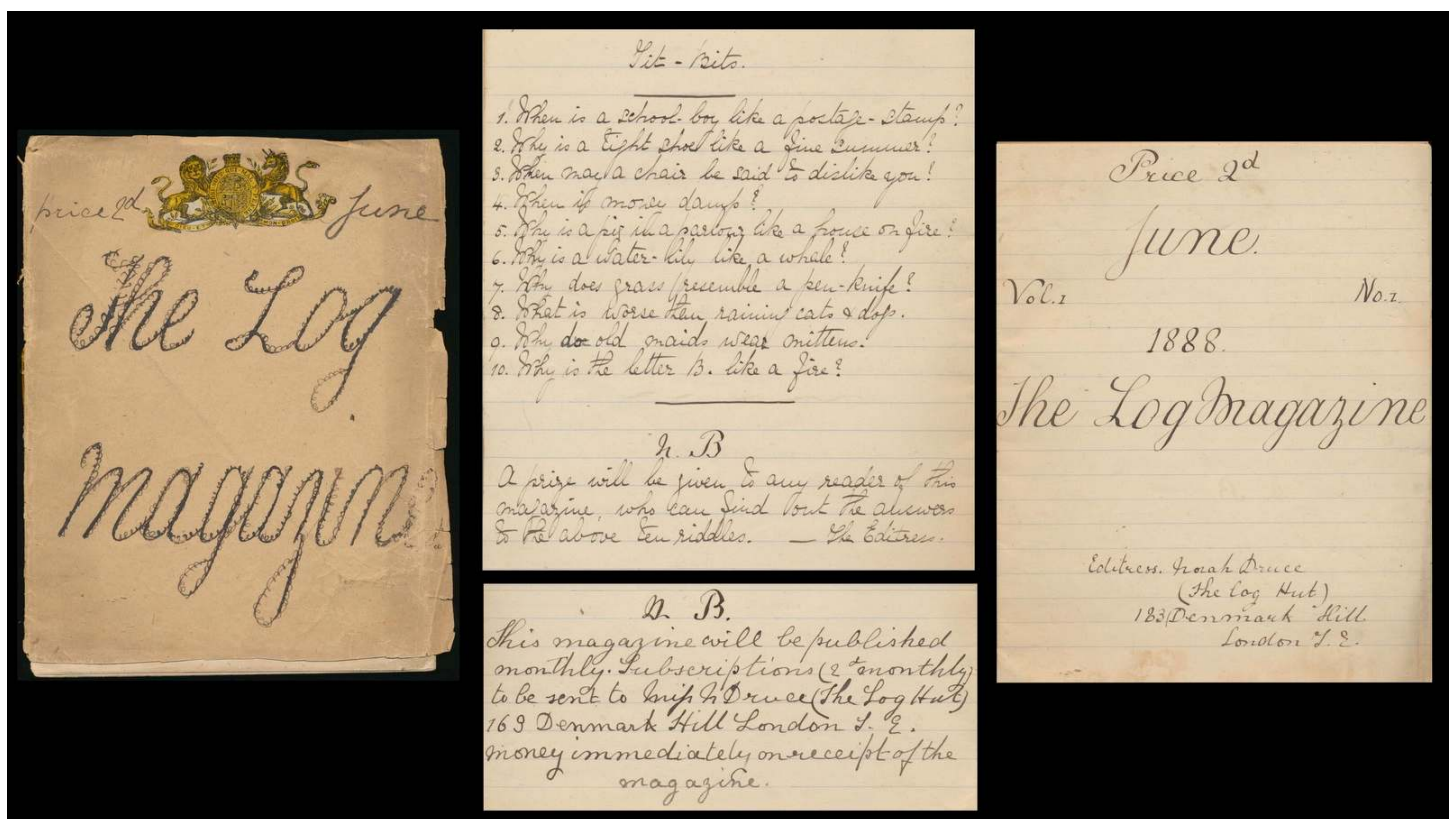 price 2d June
The Log
Magazine
Tit-Bits.
1. When is a school-boy like a postage-stamp?
2. Why is a tight shoe like a fine summer?
3. When may a chair be said to dislike you?
4. When is money damp?
5. Why is a pig in a parlour like a house on fire?
6. Why is a water-lily like a whale?
7. Why does grass resemble a pen-knife?
8. What is worse than raining cats & dogs.
9. Why do old maids wear mittens.
10. Why is the letter B. like a fire?
N. B
A prize will be given to any reader of this
magazine, who can find out the answers
to the above ten riddles. — The Editress.
N. B.
This magazine will be published
monthly. Subscriptions (2d monthly)
to be sent to Miss N Druce (The Log Hut)
169 Denmark Hill London S. E.
Money immediately on receipt of the
magazine.
Price 2d
June.
Vol. 1 No. 1.
1888.
The Log Magazine
Editress. Norah Druce
(The Log Hut)
183 Denmark Hill
London S. E.